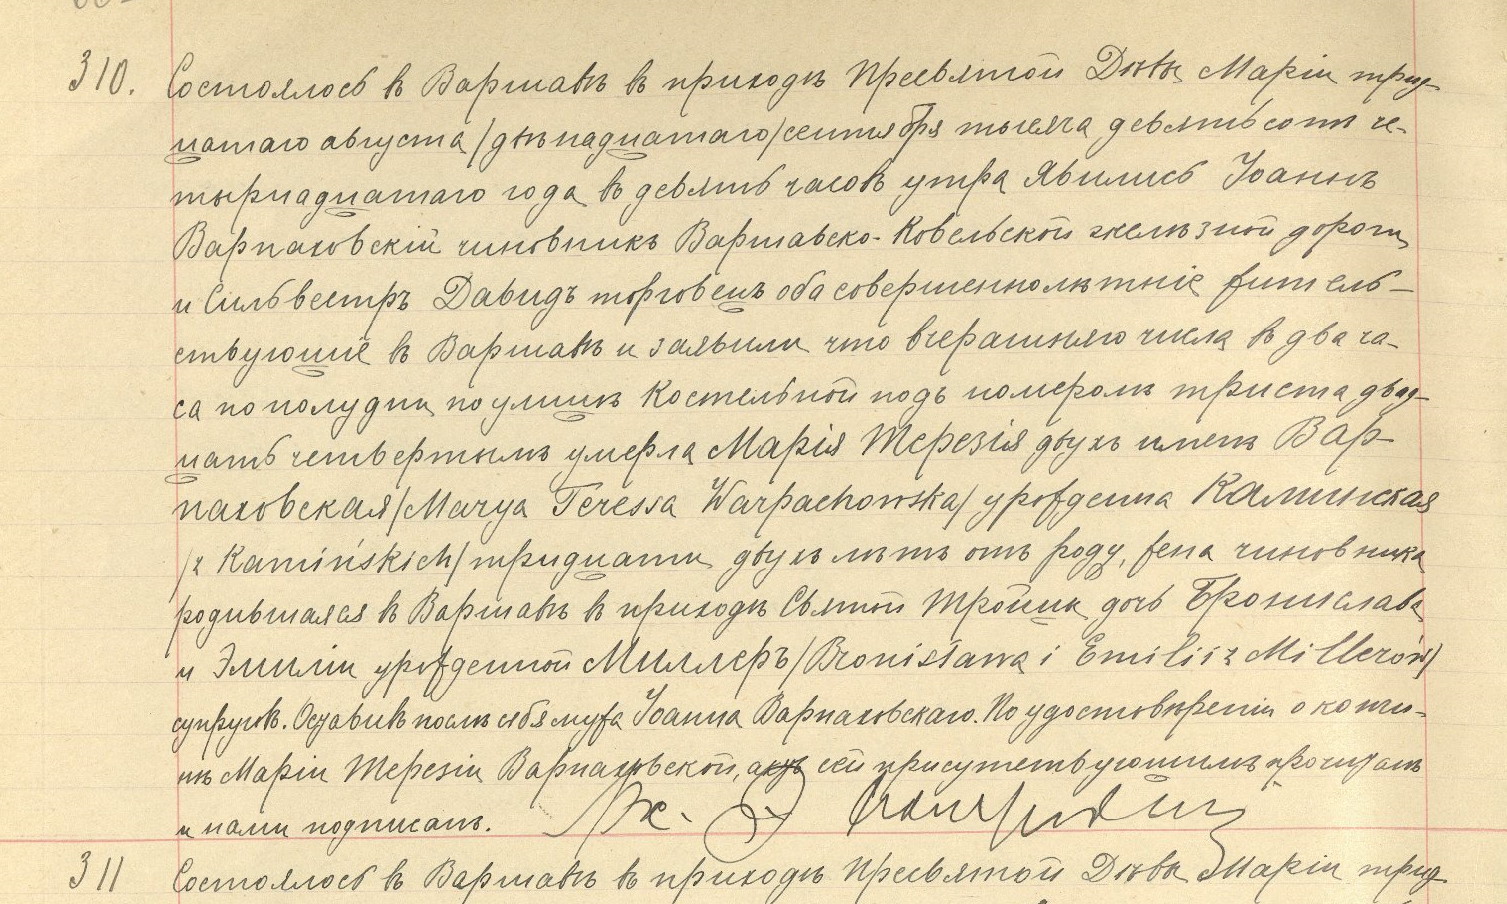 310. Состоялось в Варшавѣ в приходѣ Пресвятой Дѣвы Маріи трид-
цатаго августа /двѣнадцатаго/ сентября тысяча девятьсотъ че-
тырнадцатаго года в девять часовъ утра Явились Іоаннъ
Варпаховскій чиновникъ Варшавско-Ковельской желѣзной дороги
и Сильвестръ Давидъ торговецъ оба совершеннолѣтніе житель-
ствующіе в Варшавѣ и заявили что вчерашняго числа в два ча-
са пополудни по улицѣ Костельной подъ номеромъ триста двад-
цать четвертымъ умерла Марія Терезія двухъ именъ Вар-
паховская /Marya Teressa Warpachowska/ урожденна Каминская
/z Kamińskich/ тридцати двухъ лѣтъ отъ роду, жена чиновника
родившаяся в Варшавѣ в приходѣ Святой Тройцы дочь Бронислава
и Эмиліи урожденной Миллеръ /Bronisława i Emilii z Millerów/
супруговъ. Оставивъ послѣ себя мужа Іоанна Варпаховскаго. По удостовѣреніи о кончи-
нѣ Маріи Терезіи Варпаховской, актъ сей присутствующимъ прочитанъ
и нами подписанъ. Кс.
311 Состоялось в Варшавѣ в приходѣ Пресвятой Дѣвы Маріи трид-